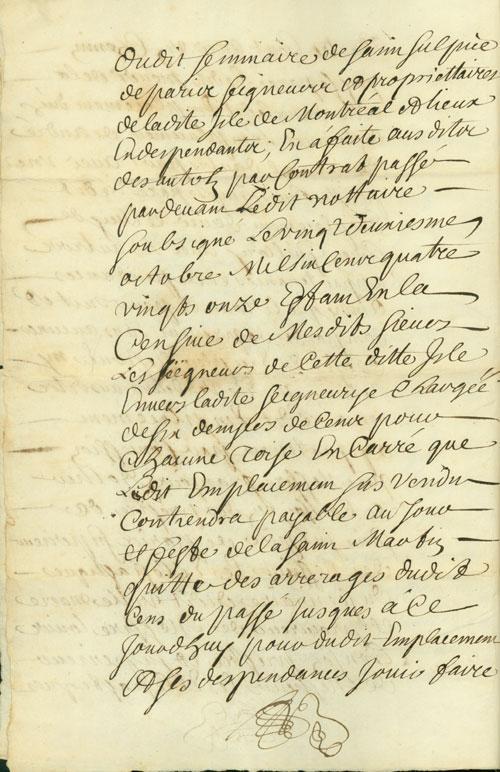 dudit seminaire de saint sulpice
de paris seigneurs et proprietaires
de ladite Isle de Montréal et lieux
En despendants; En a faite ausditz
des autelz par Contrat passé
pardevant Ledit nottaire
soubsigné Le vingt deuxiesme
octobre Mil six Cent quatre
vingts onze Estant En la
Censive de Mesdits sieurs
Les seigneurs de Cette ditte Isle
Envers ladite seigneurye Chargée
de six deniers de Cens pour
Chacune Toise En Carré que
Ledit Emplacement sus vendu
Contiendra payable au Jour
et feste de la saint Martin
quitte des arrerages dudit
Cens du passé Jusques à Ce
Jourdhuy pour dudit Emplacement
et ses despendances Jouir faire